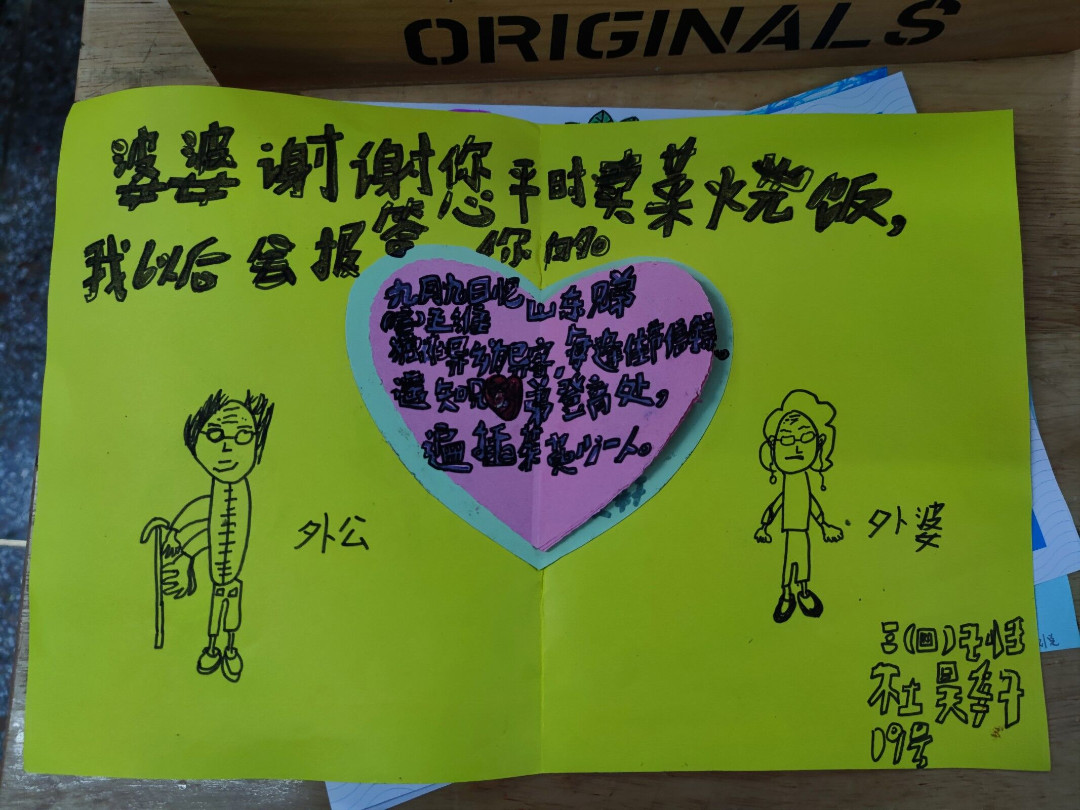 ORIGINALS
婆婆谢谢您平时卖菜烧饭,
我以后会报答你的。
九月九日忆山东兄弟
(唐)王维
独在异乡为异客,每逢佳节倍思亲。
遥知兄弟登高处,
遍插茱萸少一人。
外公
外婆
三(四)班
杜昊
19号